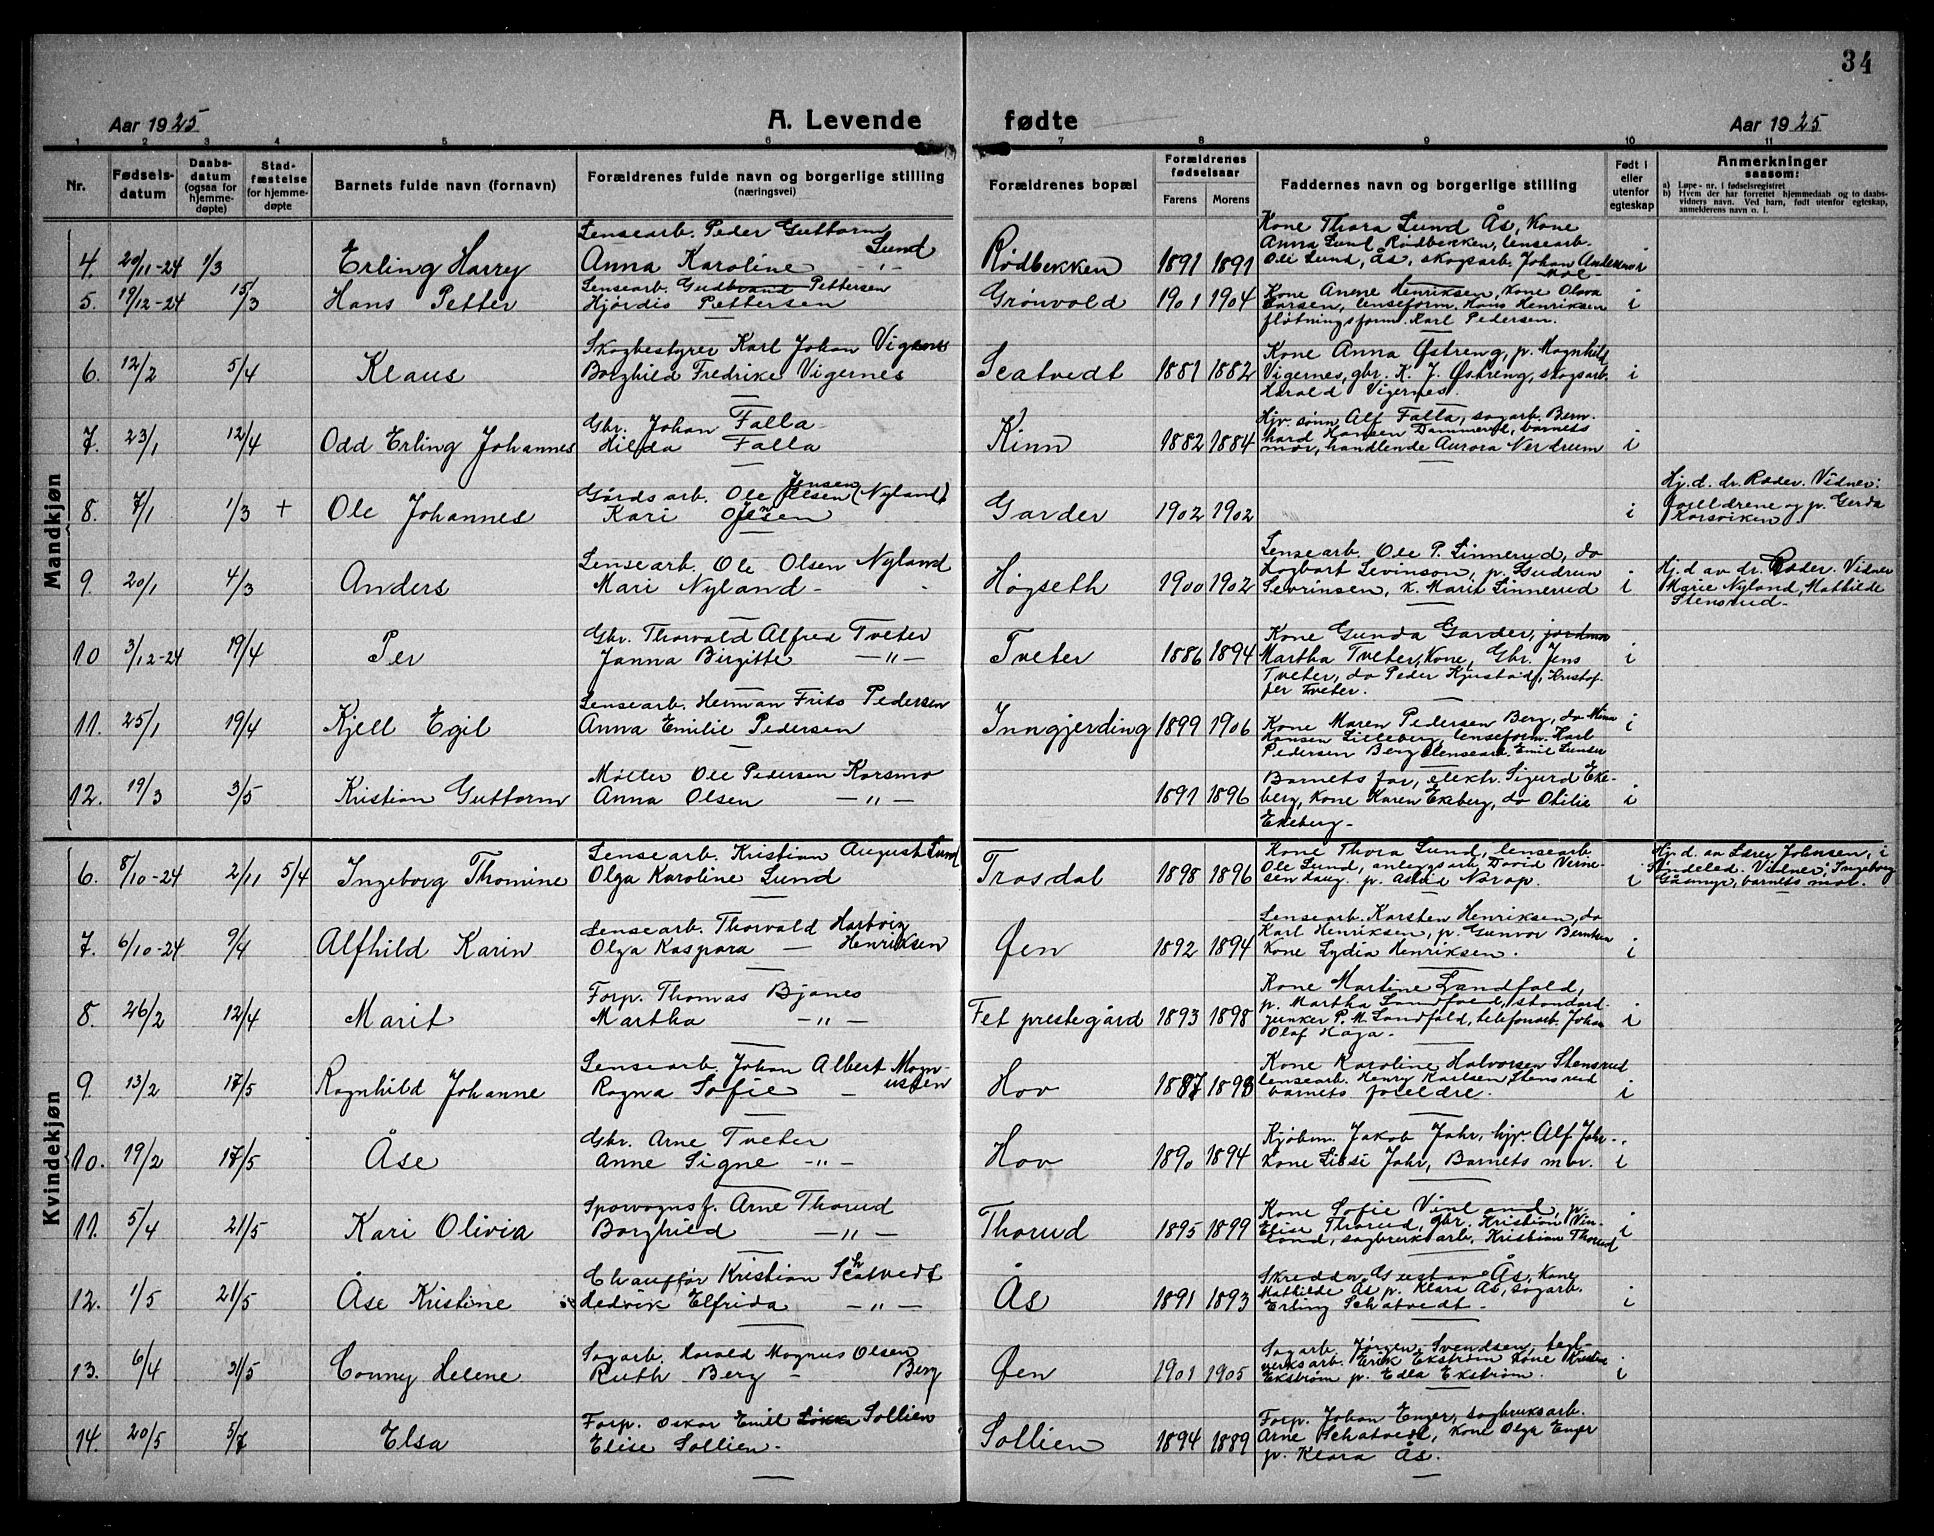 34
Aar 1925 A. Levende fødte Aar 1925
1 2 3 4 5 6 7 8 9 10 11
Nr. Fødsels-datum Daabs-datum (ogsaa for hjemme-døpte) Stad-fæstelse for hjemme-døpte Barnets fulde navn (fornavn) Forældrenes fulde navn og borgerlige stilling (næringsvei) Forældrenes bopæl Forældrenes fødselsaar Farens Morens Faddernes navn og borgerlige stilling Født i eller utenfor egteskap Anmerkninger saasom:
a) Løpe-nr. i fødselsregistret
b) Hvem der har forrettet hjemmedaab og to daabs-vidners navn. Ved barn, født utenfor egteskap, anmelderens navn o. l.
Mandkjøn
4. 20/11-24 1/3 Erling Harry
Lensearb. Peder Guttorm Lund
Anna Karoline -"-
Rødbekken 1891 1891
Kone Thora Lund Ås, Kone
Anna Lund Rødbekken, lensearb.
Ole Lund, Ås, skogsarb. Johan Andersen
i
5. 19/12-24 15/3 Hans Petter
Lensearb. Gudbrand Pettersen
Hjørdis Pettersen
Grønvold 1901 1904
Kone Anne Henriksen, Kone Olava
Larsen, lenseform. Hans Henriksen
fløtningsform. Karl Pedersen.
i
6. 12/2 5/4 Klaus
Skogbestyrer Karl Johan Vigernes
Borghild Fredrike Vigernes
Scatvedt 1881 1882
Kone Anna Østreng, p. Magnhild
Vigernes, gbr. K. J. Østreng, skogsarb.
Harald Vigernes.
i
7. 23/1 12/4 Odd Erling Johannes
Gbr. Johan Falla
Hilda Falla
Kinn 1882 1884
Hjv. sønn Alf Falla, sagarb. Bern-
hard Hansen Dammerud, barnets
mor, handlende Aurora Nerdrum
i
8. 7/1 1/3 + Ole Johannes
Gårdsarb. Ole Jensen (Nyland)
Kari Olsen
Garder 1902 1902
i
Hj. d. dr. Røder. Vidner:
foreldrene og p. Gerda
Korsviken
9. 20/1 4/3 Anders
Lensearb. Ole Olsen Nyland
Mari Nyland
Høgseth 1900 1902
Lensearb. Ole P. Linnerud, do
Dagbart Sevinson, p. Gudrun
Sevrinsen, K. Marit Linnerud
i
Hj. d av dr. Røder. Vidner
Marie Nyland, Mathilde
Stensrud.
10 3/12-24 19/4 Per
Gbr. Thorvald Alfred Tveter
Janna Birgitte -"-
Tveter 1886 1894
Kone Gunda Garder, jordmor
Martha Tveter, Kone, Gbr. Jens
Tveter, do Peder Kjustad, Kristof-
fer Tveter.
i
11. 25/1 19/4 Kjell Egil
Lensearb. Herman Frits Pedersen
Anna Emilie Pedersen
Inngjerding 1899 1906
Kone Maren Pedersen Berg, do Mina
Hansen Lilleberg, lenseform. Karl
Pedersen Berg, lensearb. Emil Lunder
i
12. 19/3 3/5 Kristian Guttorm
Møller Ole Pedersen Korsmo
Anna Olsen -"-
1891 1896
Barnets far, elektr. Sigurd Eke-
berg, Kone Karen Ekeberg, do Otilie
Ekeberg
i
Kvindekjøn
6. 8/10-24 2/11 5/4 Ingeborg Thomine
Lensearb. Kristian August Lund
Olga Karoline Lund
Trosdal 1898 1896
Kone Thora Lund, lensearb.
Ole Lund, anleggsarb. David Verne-
sen daug. p. Astrid Norop.
i
Hj. d. av Lærer Johnsen, i
Søndeled. Vidner: Ingeborg
Gåsmyr, barnets mor.
7. 6/10-24 9/4 Alfhild Karin
Lensearb. Thorvald Hartvig
Olga Kaspara — Henriksen
Øen 1892 1894
Lensearb. Karsten Henriksen, do
Karl Henriksen, p. Gunvor Berntsen
Kone Lydia Henriksen.
i
8. 26/2 12/4 Marit
Forp. Thomas Bjanes
Martha -"-
Fet prestegård 1893 1898
Kone Martine Landfald,
p. Martha Landfald, standard-
junker P. M. Landfald, telefonarb. Johan
Olaf Haga.
i
9. 13/2 17/5 Ragnhild Johanne
Lensearb. Johan Albert Magn-
Ragna Sofie — ussen
Hov 1887 1893
Kone Karoline Halvorsen Stensrud
lensearb. Henry Karlsen, Stensrud
barnets foreldre.
i
10. 19/2 17/5 Åse
Gbr. Arne Tveter
Anne Signe -"-
Hov 1890 1894
Kjøbm. Jakob Jahr, hjv. Alf Jahr
Kone Lissi Jahr, Barnets mor.
i
11. 5/4 21/5 Kari Olivia
Sporvognsf. Arne Thorud
Borghild -"-
Thorud 1895 1899
Kone Sofie Vinland, p.
Elise Thorud, gbr. Kristian Vin-
land, sagbruksarb. Kristian Thorud
i
12. 1/5 21/5 Åse Kristine
Chauffør Kristian Schatvedt
Hedvik Elfrida -"-
Ås 1891 1893
Skredder Gustav Ås, Kone
Mathilde Ås p. Klara Ås, sagarb.
Erling Schatvedt
i
13. 6/4 21/5 Conny Helene
Sagarb. Harald Magnus Olsen
Ruth Berg - Berg
Øen 1901 1905
Sagarb. Jørgen Svendsen, tegl-
verksarb. Erik Ekstrøm Kone Kristine
Ekstrøm p. Edla Ekstrøm.
i
14. 20/5 5/7 Elsa
Forp. Oskar Emil Sollien
Elise Sollien
Sollien 1894 1889
Forp. Johan Enger, sagbruksarb.
Arne Schatvedt, Kone Olga Enger
p. Klara Ås.